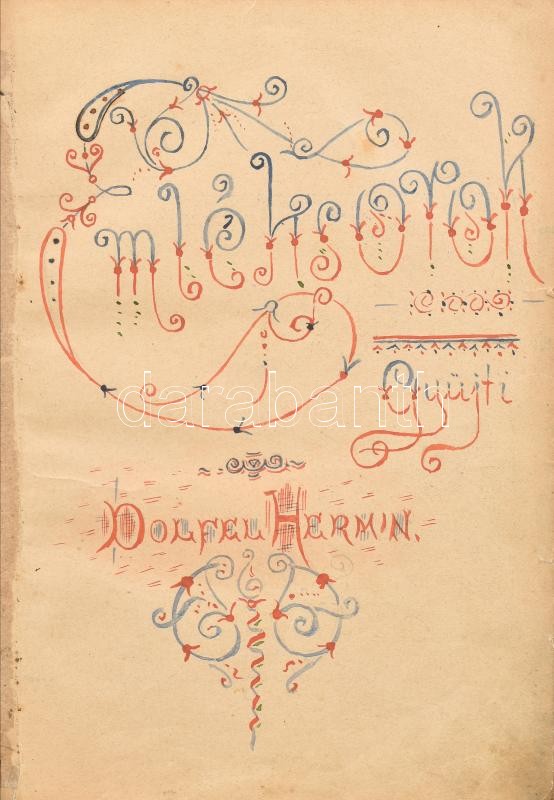 Emléksorok
Gyüjti
darabanth
DOLFEL HERMIN.